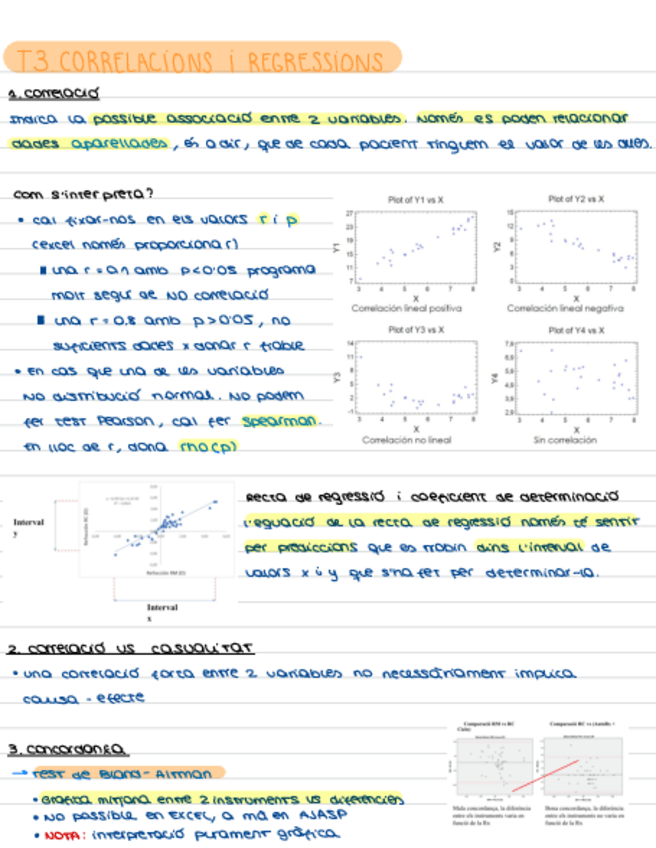 T3. CORRELACIONS i REGRESSIONS
1. correlació
marca la possible associació entre 2 variables. Només es poden relacionar
dades aparellades, és a dir, que de cada pacient tinguem el valor de les dues.
com s'interpreta?
• cal fixar-nos en els valors r i p
(excel només proporciona r)
una r = 0.1 amb p<0.05 programa
molt segur de NO correlació
una r = 0.8 amb p>0.05, no
suficients dades x donar r fiable
• en cas que una de les variables
NO distribució normal. No podem
fer test Pearson, cal fer spearman.
En lloc de r, dona rho(p)
Plot of Y1 vs X
Y1
X
Correlación lineal positiva
Plot of Y2 vs X
Y2
X
Correlación lineal negativa
Plot of Y3 vs X
Y3
X
Correlación no lineal
Plot of Y4 vs X
Y4
X
Sin correlación
Interval
y
Interval
x
Recta de regressió i coeficient de determinació
L'equació de la recta de regressió només té sentit
per prediccions que es trobin dins l'interval de
valors x i y que s'ha fet per determinar-la.
2. correlació vs casualitat
• una correlació forta entre 2 variables no necessàriament implica
causa - efecte
3. concordança
→ Test de Bland-Altman
• Gràfica mitjana entre 2 instruments vs diferències
• NO possible en EXCEL, a mà en AJASP
• NOTA: interpretació purament gràfica
Mala concordança, la diferència
entre els instruments varia en
funció de la Rx
Bona concordança, la diferència
entre els instruments no varia en
funció de la Rx